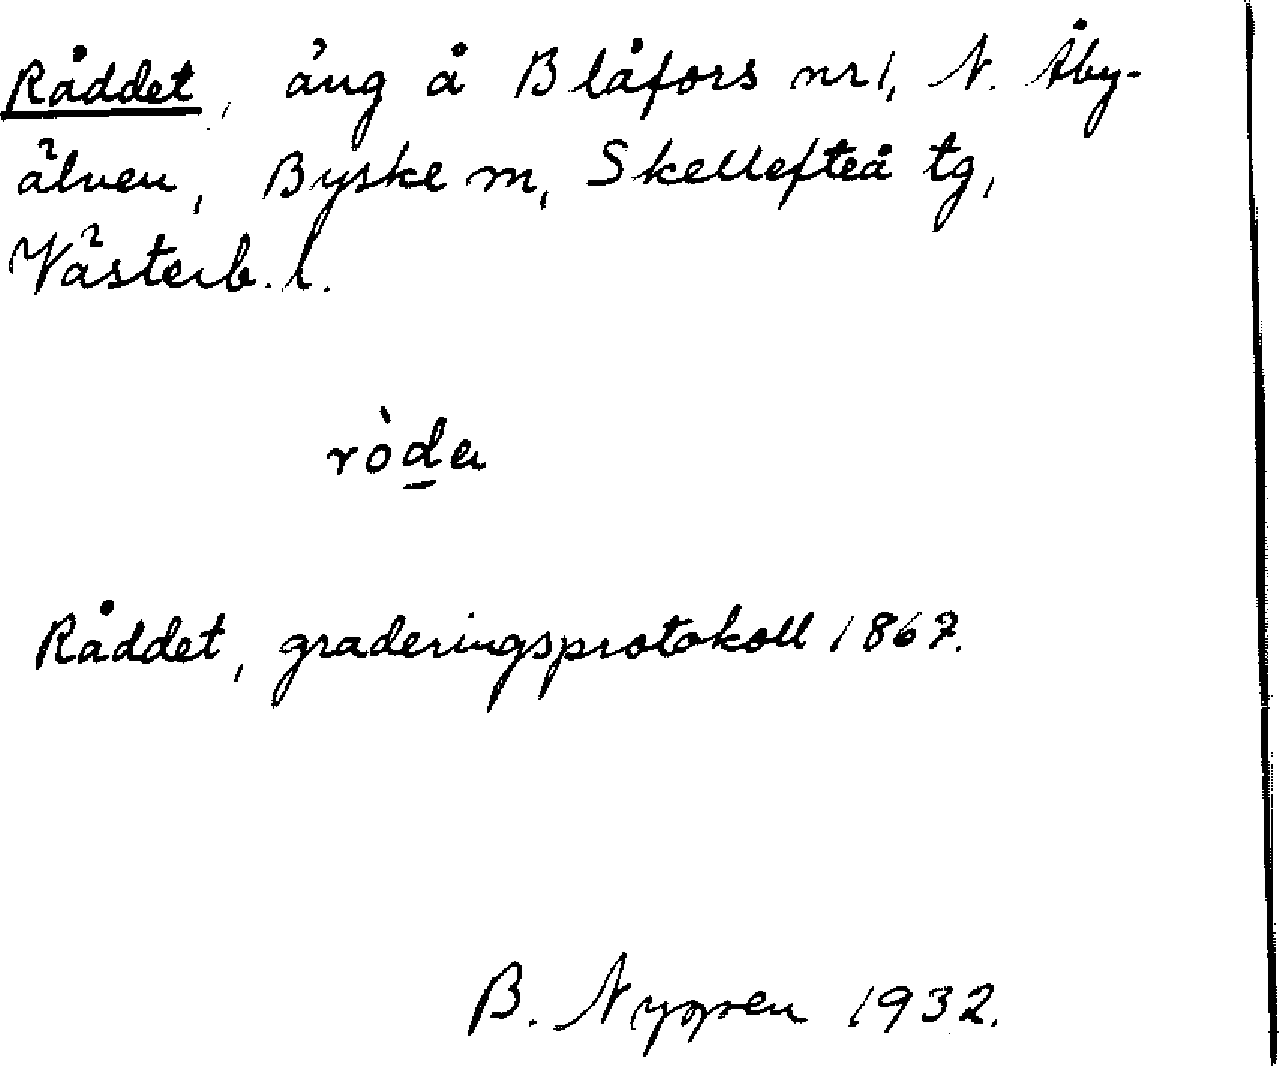 Råddet, äng å Blåfors nr 1, N. Åby-
älven, Byske sn, Skellefteå tg,
Västerb. l.
ròde
Råddet, graderingsprotokoll 1867.
B. 1932.